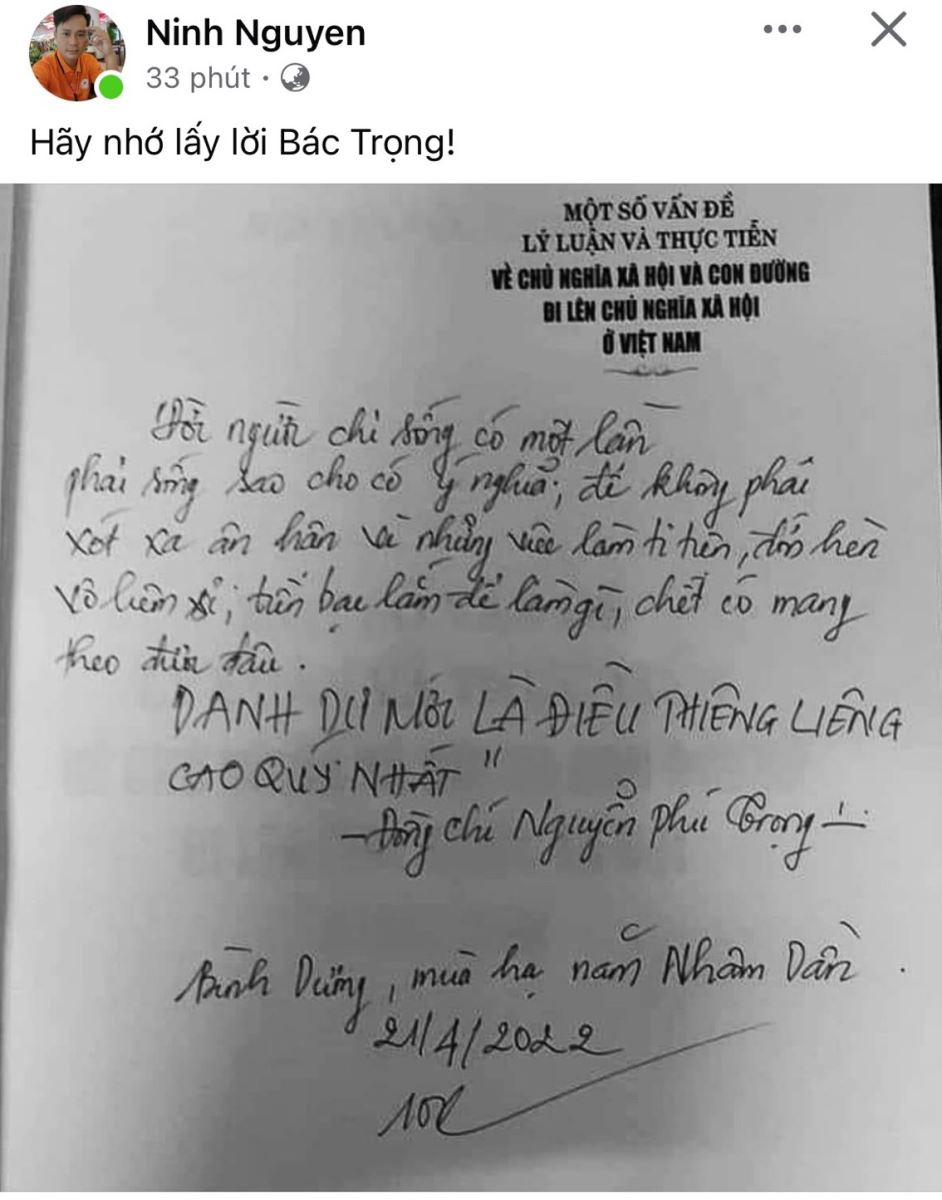 Ninh Nguyen
33 phút ·
Hãy nhớ lấy lời Bác Trọng!
MỘT SỐ VẤN ĐỀ
LÝ LUẬN VÀ THỰC TIỄN
VỀ CHỦ NGHĨA XÃ HỘI VÀ CON ĐƯỜNG
ĐI LÊN CHỦ NGHĨA XÃ HỘI
Ở VIỆT NAM
Đời người chỉ sống có một lần
phải sống sao cho có ý nghĩa; để không phải
xót xa ân hận vì những việc làm ti tiện, đớn hèn
vô liêm sỉ; tiền bạc lắm để làm gì, chết có mang
theo được đâu.
DANH DỰ MỚI LÀ ĐIỀU THIÊNG LIÊNG
CAO QUÝ NHẤT"
- Đồng chí Nguyễn phú Trọng -
Bình Dương, mùa hạ năm Nhâm Dần.
21/4/2022